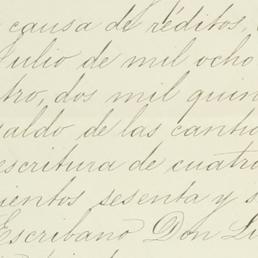 causa de réditos,
Julio de mil ocho
tro, dos mil quin
saldo de las canti
escritura de cuatro
cientos sesenta y s
Escribano Don Lu